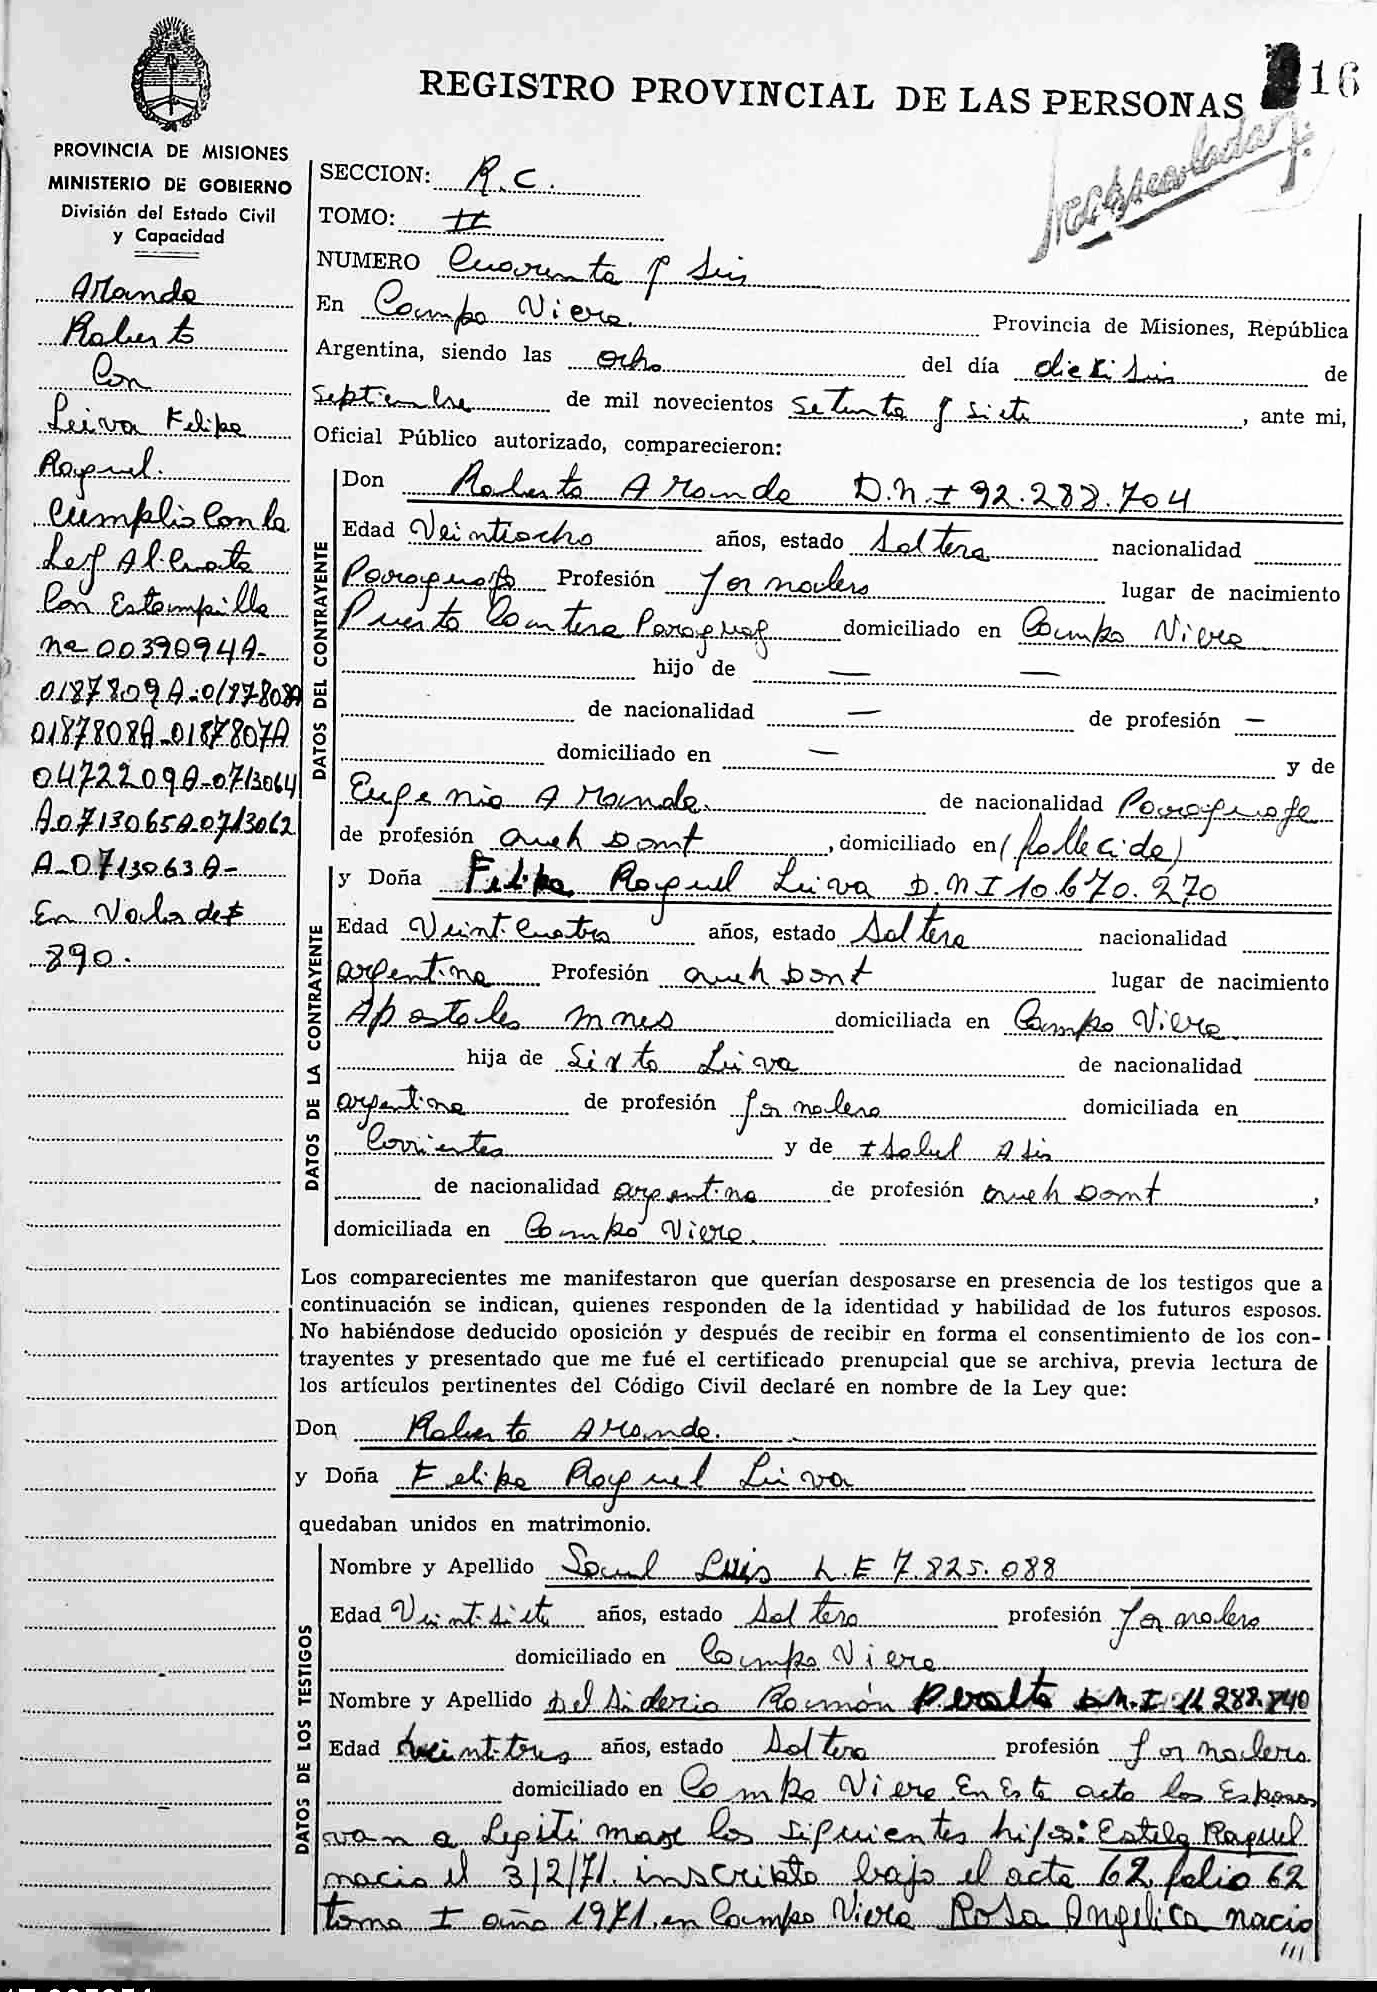 REGISTRO PROVINCIAL DE LAS PERSONAS
16
PROVINCIA DE MISIONES
MINISTERIO DE GOBIERNO
División del Estado Civil
y Capacidad
Aranda
Roberto
Con
Leiva Felipa
Raquel.
Cumplio Con la
Ley Al. Cuota
Con Estampilla
nº 0039094A-
0187809A-0187808A
0187808A-0187807A
0472209A-0713064
A0713065A0713062
A-0713063A-
En Valor de $
890.
SECCION: R.C.
TOMO: II
NUMERO Cuarenta y Seis
En Campo Viera. Provincia de Misiones, República
Argentina, siendo las ocho del día dieciseis de
Septiembre de mil novecientos Setenta y siete, ante mi,
Oficial Público autorizado, comparecieron:
DATOS DEL CONTRAYENTE
Don Roberto Aranda D.N.I 92.288.704
Edad Veintiocho años, estado Soltero nacionalidad
Paraguayo Profesión Jornalero lugar de nacimiento
Puerto Paraguay domiciliado en Campo Viera
hijo de — —
de nacionalidad — de profesión —
domiciliado en — y de
Eugenia Aranda. de nacionalidad Paraguaya
de profesión queh Domt, domiciliado en (fallecida)
DATOS DE LA CONTRAYENTE
y Doña Felipa Raquel Leiva D.N.I 10.670.270
Edad Veinticuatro años, estado Soltera nacionalidad
argentina Profesión queh Domt lugar de nacimiento
Apostoles Mnes domiciliada en Campo Viera
hija de Sixto Leiva de nacionalidad
argentino de profesión Jornalero domiciliada en
Corrientes y de Isabel Asis
de nacionalidad argentina de profesión queh Domt,
domiciliada en Campo Viera.
Los comparecientes me manifestaron que querían desposarse en presencia de los testigos que a
continuación se indican, quienes responden de la identidad y habilidad de los futuros esposos.
No habiéndose deducido oposición y después de recibir en forma el consentimiento de los con-
trayentes y presentado que me fué el certificado prenupcial que se archiva, previa lectura de
los artículos pertinentes del Código Civil declaré en nombre de la Ley que:
Don Roberto Aranda.
y Doña Felipa Raquel Leiva
quedaban unidos en matrimonio.
DATOS DE LOS TESTIGOS
Nombre y Apellido Luis L.E 7.825.088
Edad Veintisiete años, estado Soltero profesión Jornalero
domiciliado en Campo Viera
Nombre y Apellido Delsiderio Ramón Peralta D.N.I 11.288.840
Edad Veintitres años, estado Soltero profesión Jornalero
domiciliado en Campo Viera En Este acto los Esposos
van a Legitimar los siguientes hijos: Estela Raquel
nacio el 3/2/71. inscripto bajo el acta 62 folio 62
tomo I año 1971. en Campo Viera Rosa Angelica nacio
///